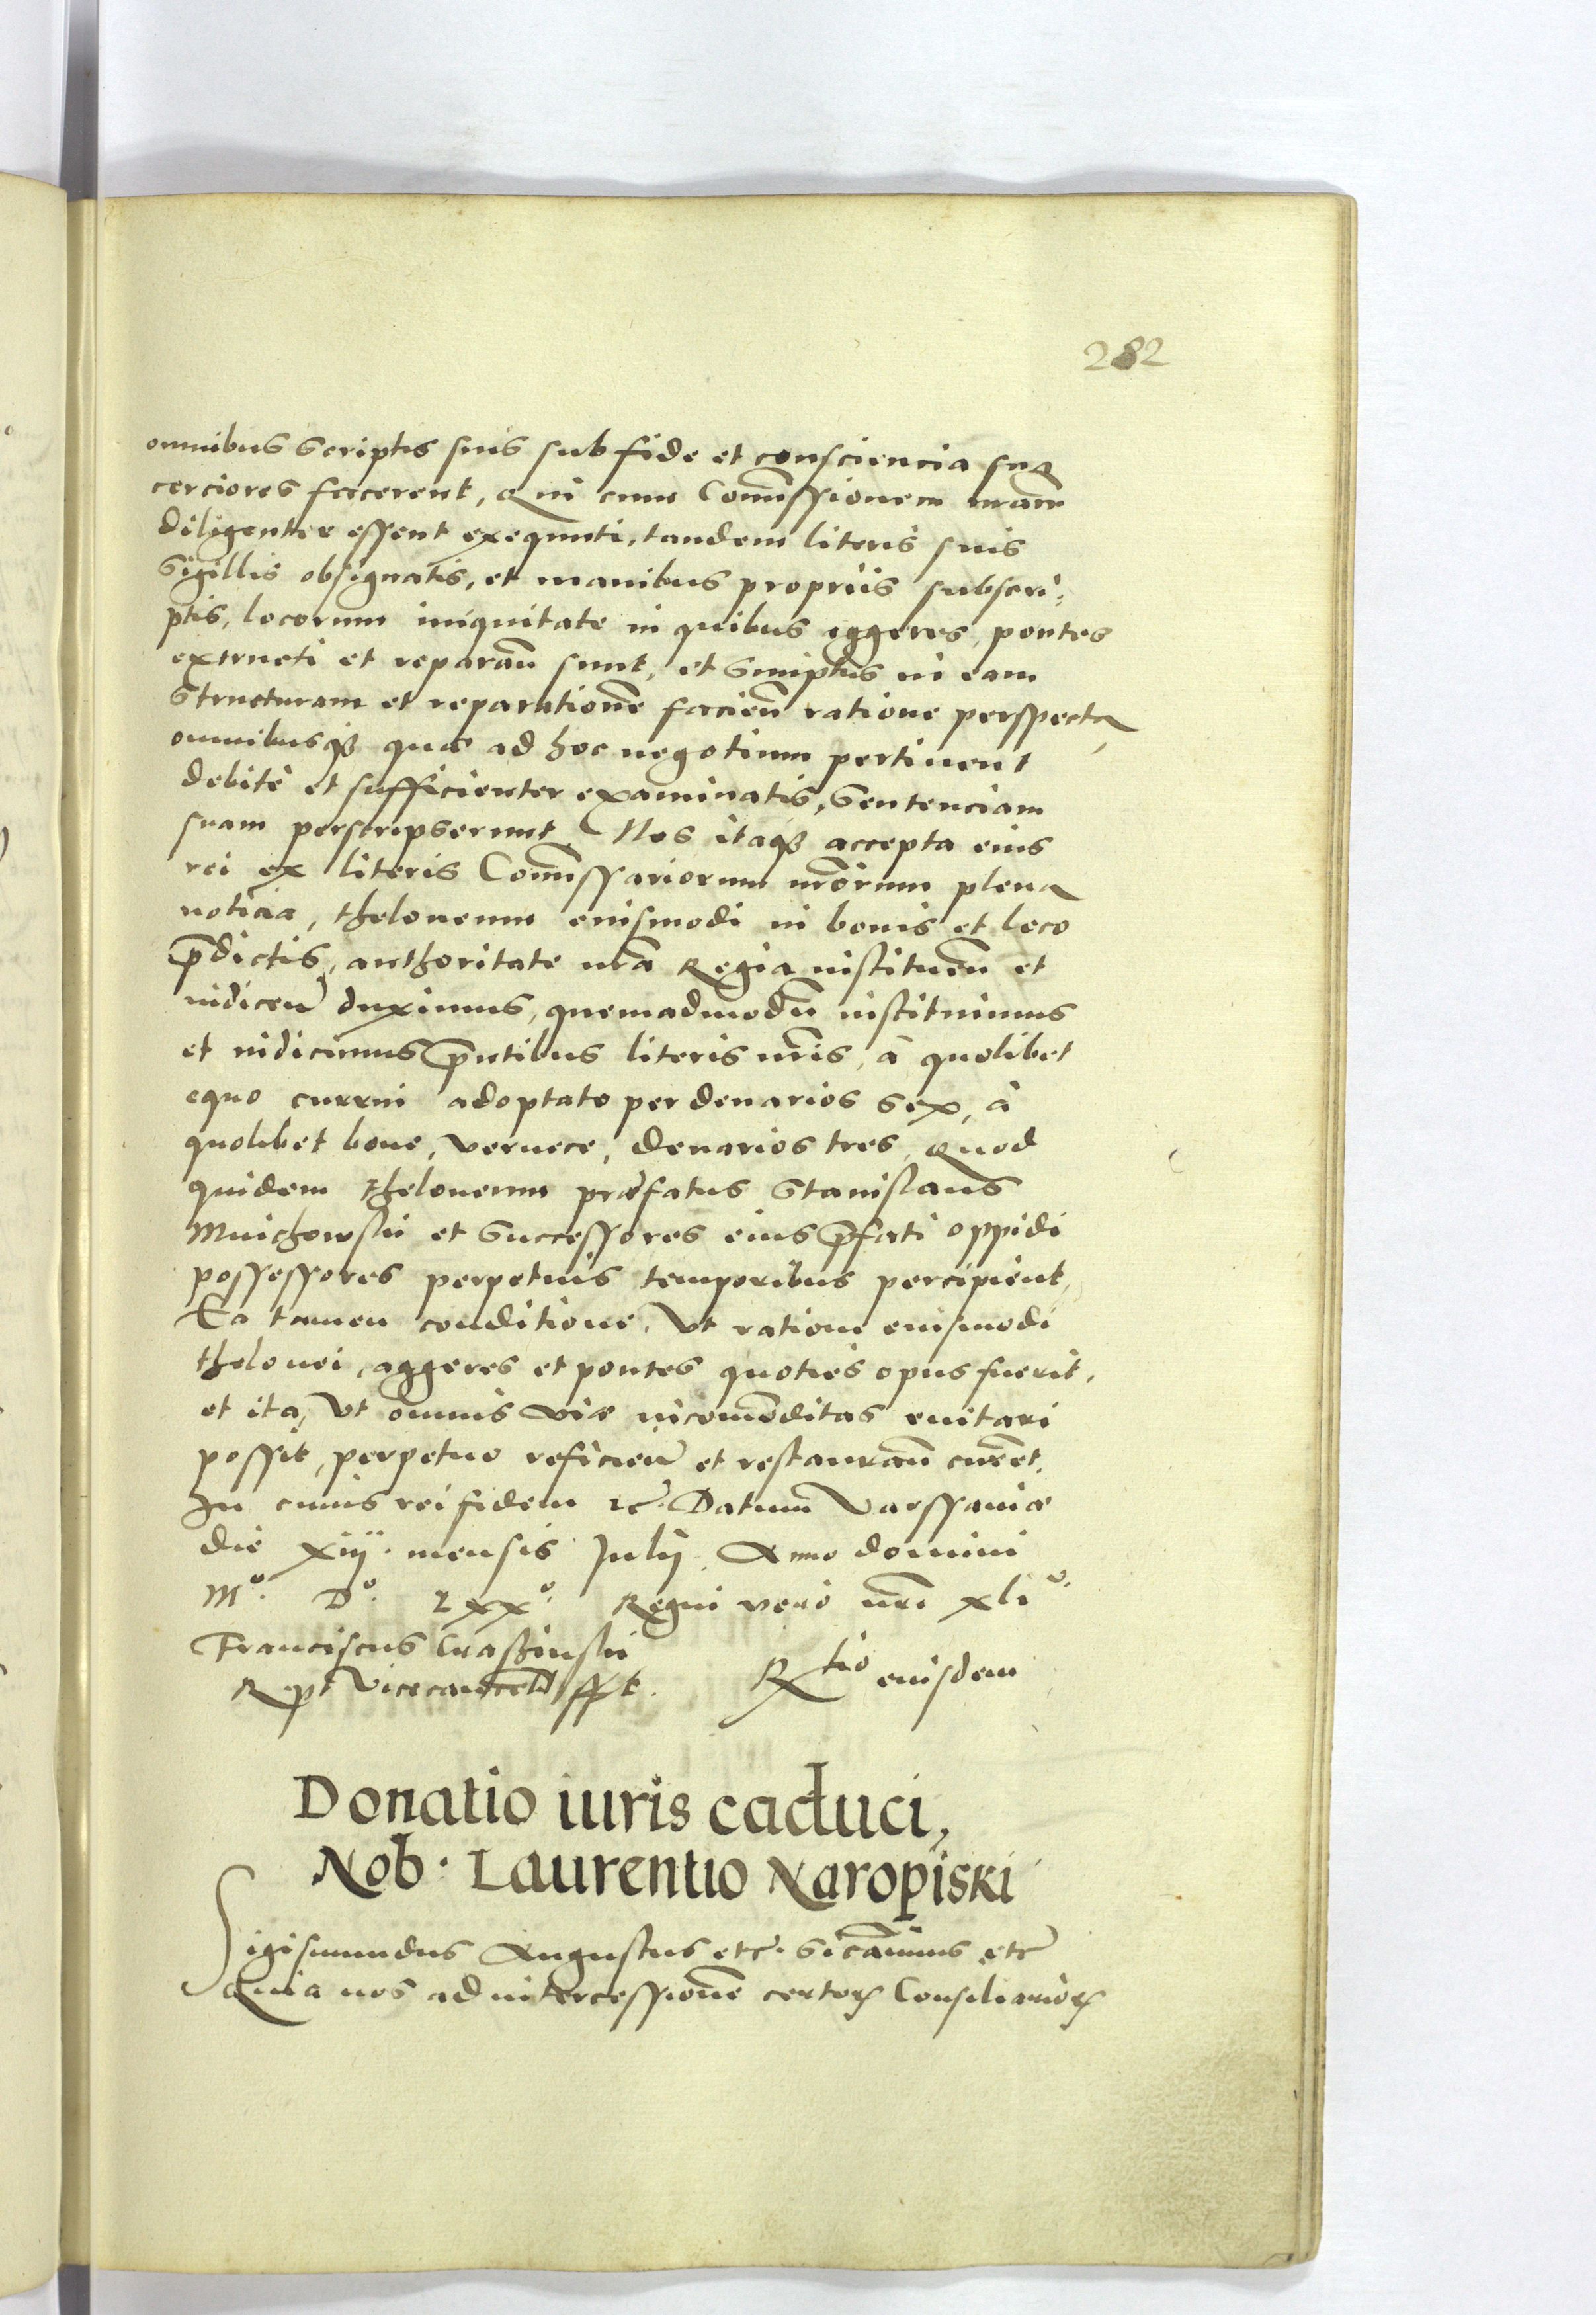 282
omnibus scriptis suis sub fide et consciencia sua
cerciores facerent, Qui cum Com̃issionem nram̃
diligenter essent exequuti, tandem literis suis
Sigillis obsignatis, et manibus proprijs subscri:
ptis, locorum iniquitate in quibus aggeres, pontes
extructi et reparan̄ sunt, et Sumptus in eam
Structuram et reparationē facien̄ ratione perspecta,
omnibusqȝ quæ ad hoc negotium pertinent
debite et sufficienter examinatis, Sentenciam
suam perscripserunt. Nos itaqȝ accepta eius
rei ex literis Com̃issariorum nr̃orum plena
noticia, theloneum eiusmodi in bonis et loco
p̄dictis, authoritate nrã Regia instituen̄ et
indicen̄ duximus, quemadmodũ instituimus
et indicimus p̄ntibus literis nr̃is, à quolibet
equo currui adoptato per denarios sex, à
quolibet boue, veruece, denarios tres, Quod
quidem theloneum præfatus Stanislaus
Muichowski et Successores eius p̄fati oppidi
possessores perpetuis temporibus percipient,
Ea tamen conditione, Vt ratione eiusmodi
thelonei, aggeres et pontes quoties opus fuerit,
et ita, Vt omnis viæ incom̃oditas euitari
possit, perpetuo reficien̄ et restauran̄ curẽt.
In cuius rei fidem etc̃. Datum Varssauiæ
die xiij. mensis Julij. Anno domini
Mº. Dº. Lxxº. Regni vero nr̃i xliº.
Franciscus Crasinski
R. P. Vicecancell sst.
Rtio eiusdem
Donatio iuris caduci,
Nob. Laurentio Naropiski
Sigismundus Augustus etc̃. Sicãimus etc̃
Quia nos ad intercessionē certoꝝ Consiliarioꝝ